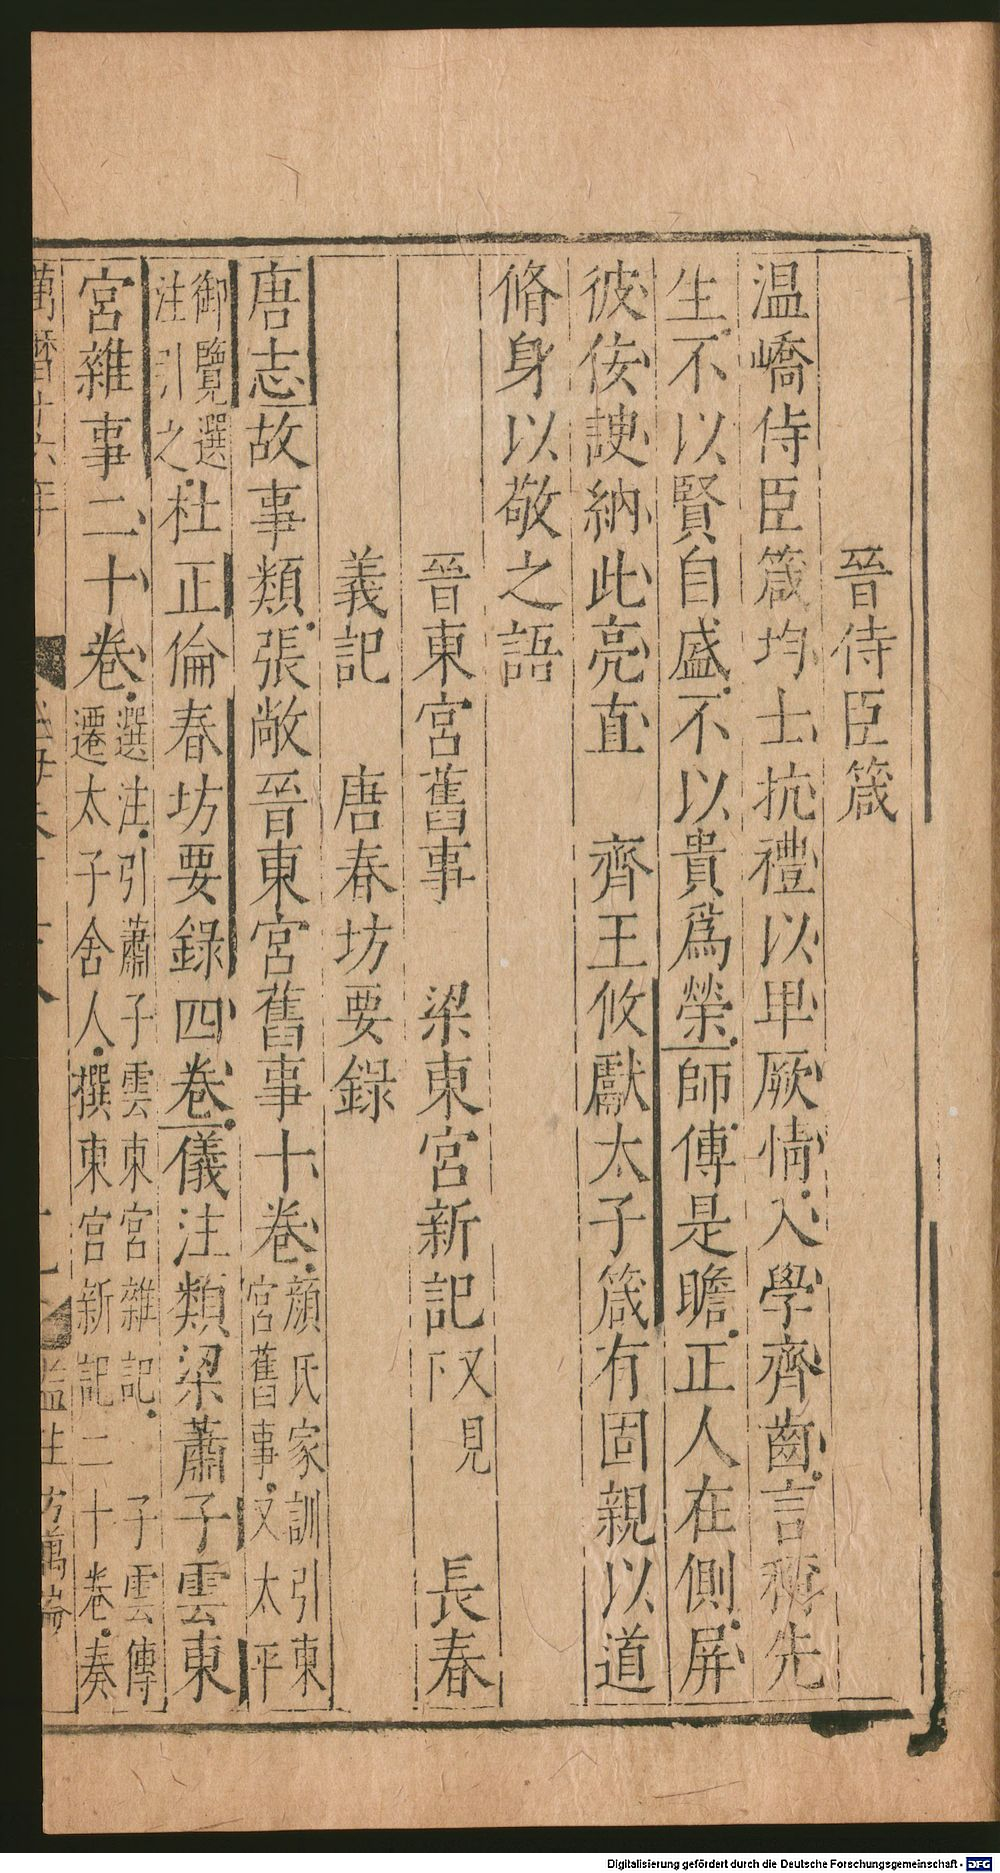 晉侍臣箴
温嶠侍臣箴均士抗禮以卑厥情入學齊齒言稱先
生不以賢自盛不以貴爲榮師傅是瞻正人在側屏
彼佞諛納此亮直　齊王攸獻太子箴有固親以道
脩身以敬之語
晉東宮舊事　梁東宮新記又見下　長春
義記　唐春坊要錄
唐志故事類張敞晉東宮舊事十卷顔氏家訓引東宮舊事又太平
御覽選注引之杜正倫春坊要錄四卷儀注類梁蕭子雲東
宮雜事二十卷選注引蕭子雲東宮雜記　子雲傳遷太子舍人撰東宮新記二十卷奏
萬曆十六年
監生
Digitalisierung gefördert durch die Deutsche Forschungsgemeinschaft - DFG